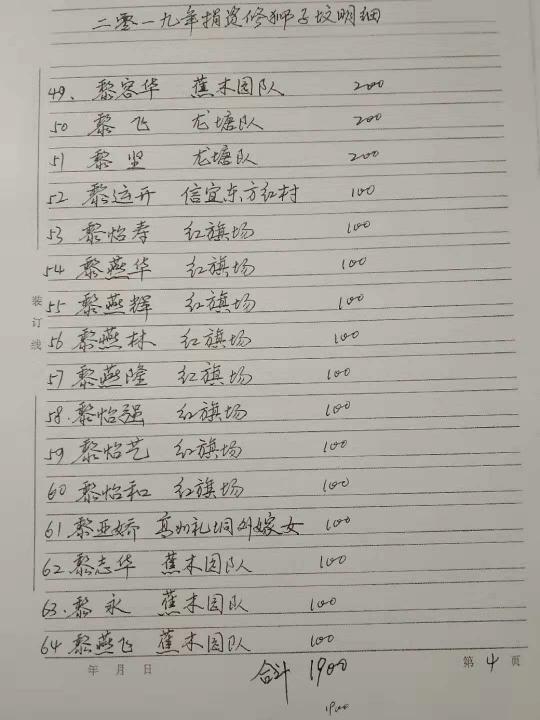 二零一九年捐资修狮子坟明细
49、黎容华 蕉木园队 200
50 黎飞 龙塘队 200
51 黎坚 龙塘队 200
52 黎运开 信宜东方红村 100
53 黎怡寿 红旗场 100
54 黎燕华 红旗场 100
55 黎燕辉 红旗场 100
56 黎燕林 红旗场 100
57 黎燕隆 红旗场 100
58.黎怡强 红旗场 100
59 黎怡艺 红旗场 100
60 黎怡和 红旗场 100
61 黎亚娇 高州礼垌外嫁女 100
62 黎志华 蕉木园队 100
63.黎永 蕉木园队 100
64 黎燕飞 蕉木园队 100
装订线
年 月 日 合计 1900 第 4 页
1900